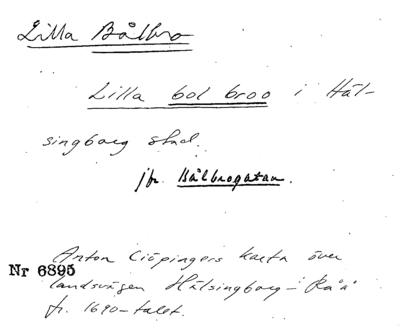 Lilla Bålbro
Lilla bol broo i Häl-
singborg stad.
jfr. Bålbrogatan.
Anton Ciöpingers karta över
Nr 6895
landsvägen Hälsingborg-Råå
fr. 1690-talet.